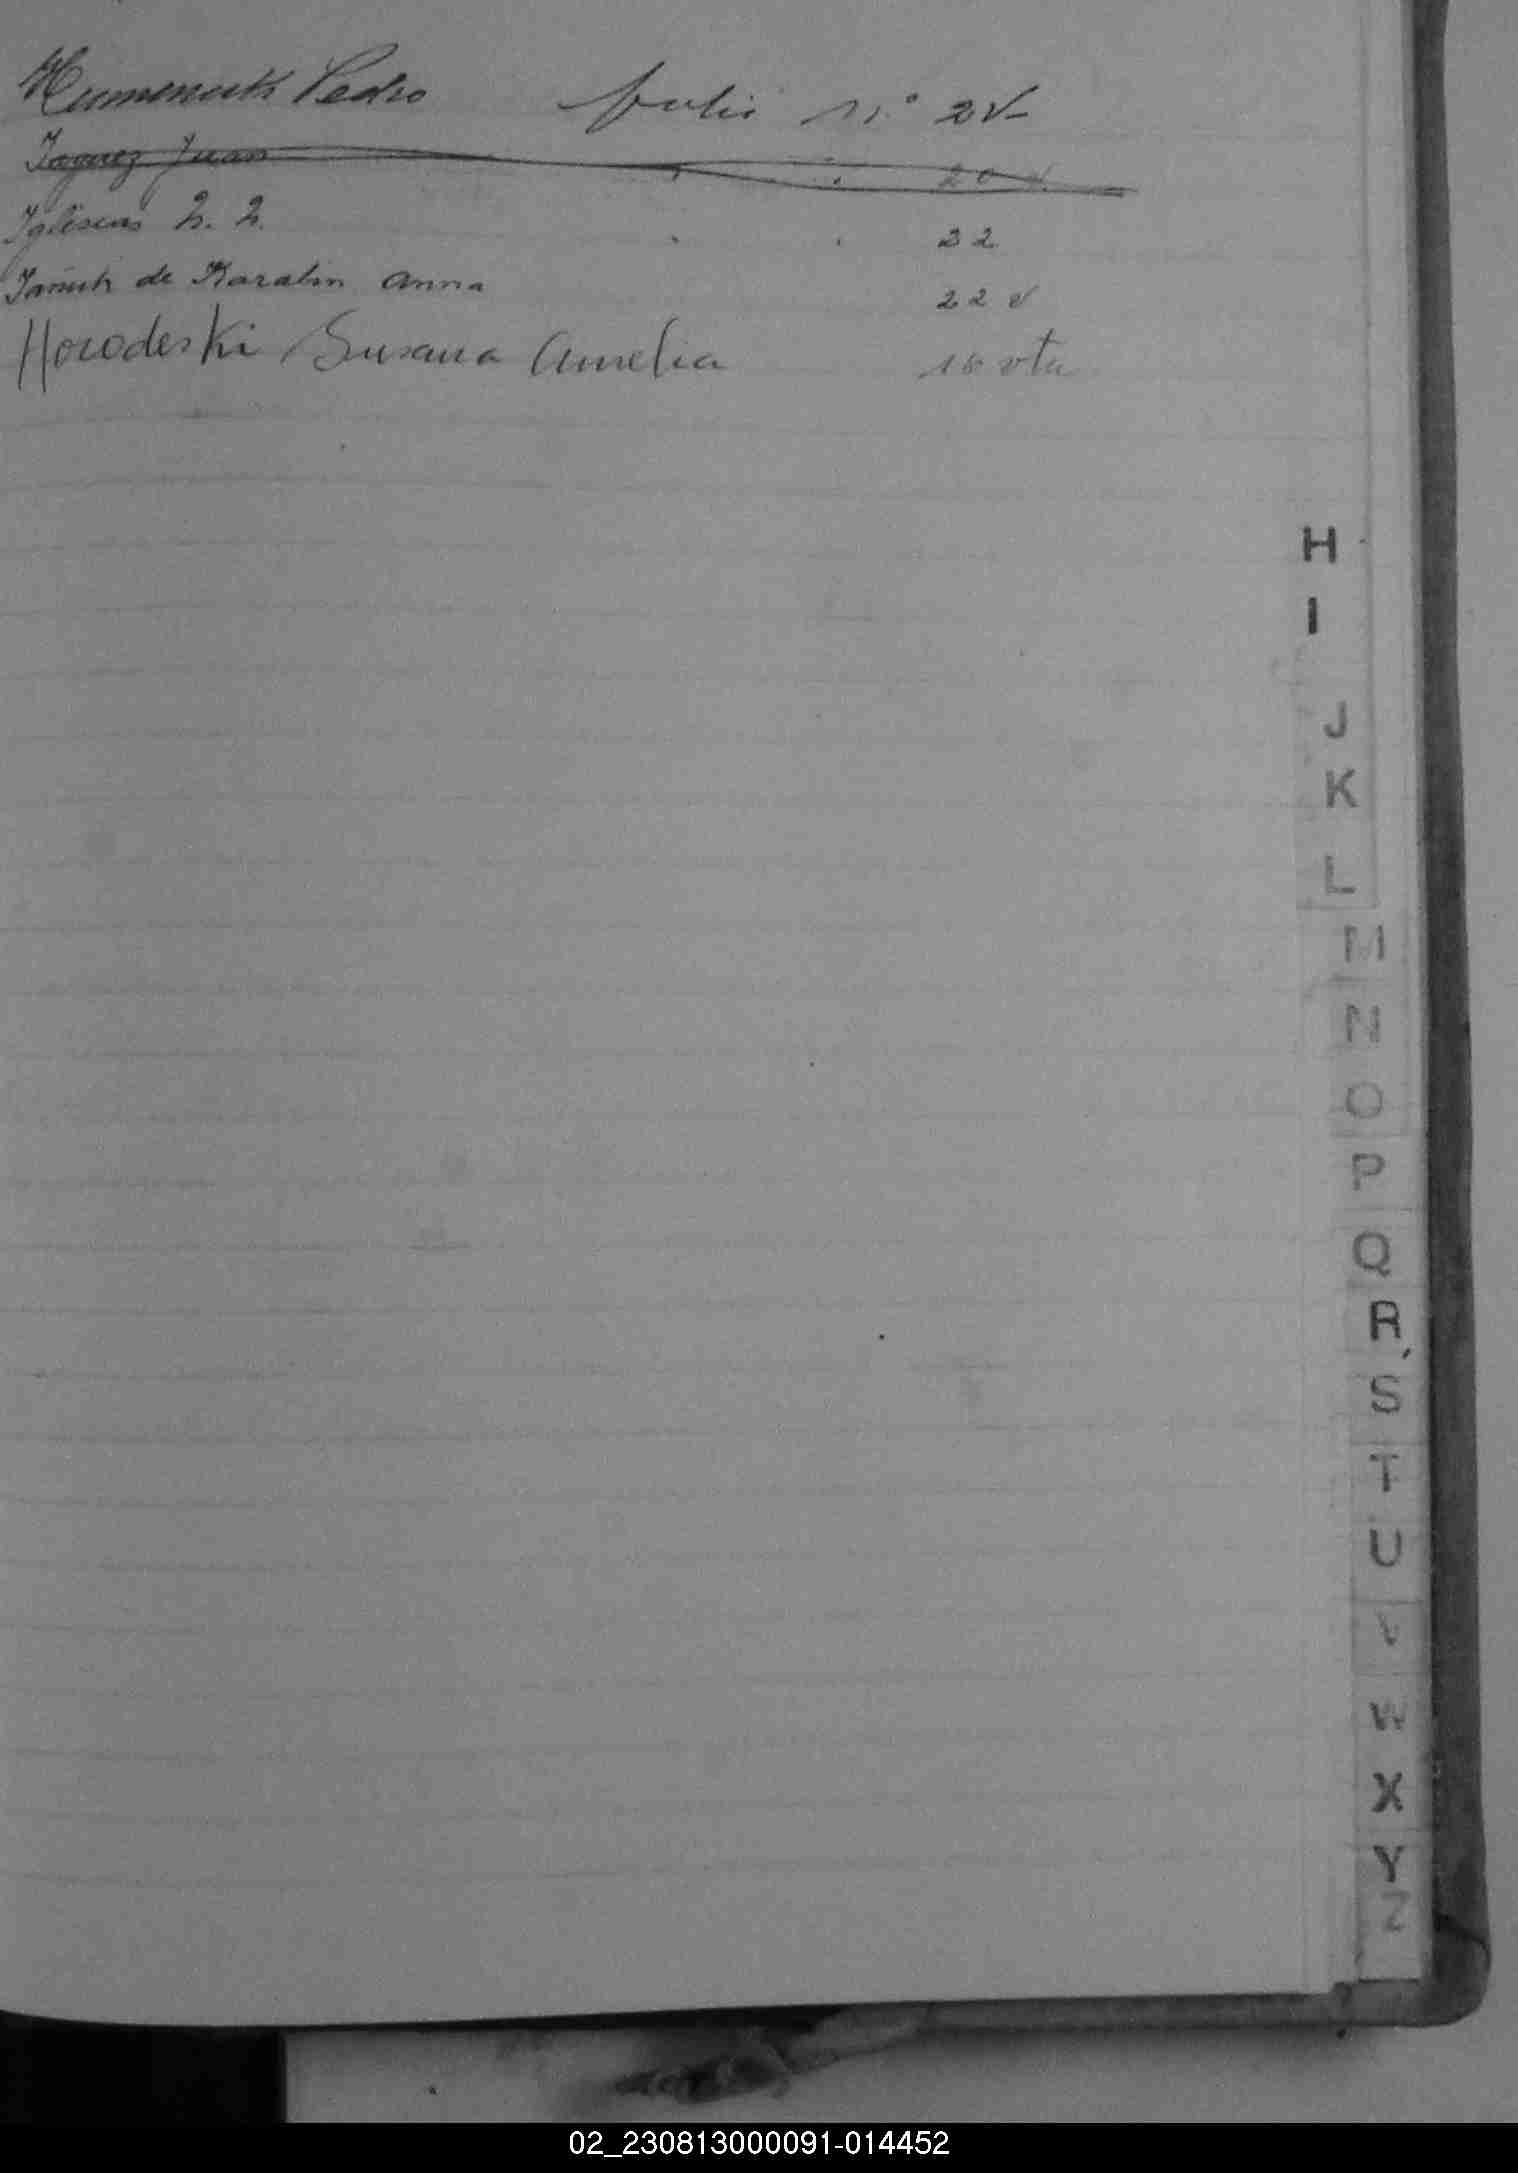 Humeniuk Pedro folio n.° 2 v
Iaquez Juan . . 20 v.
Iglesias N. N. . . 22
de Anna 22 v
Horodeski Susana Amelia 18 vta
H
I
J
K
L
M
N
O
P
Q
R
S
T
U
V
W
X
Y
Z
02_230813000091-014452